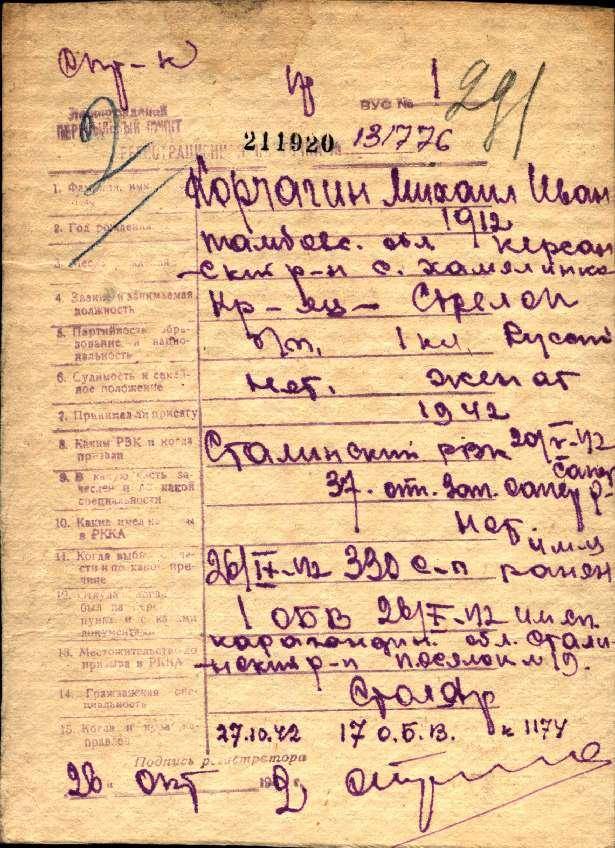 Спр-к
1
291
2
ВУС №
ПЕРЕСЫЛЬНЫЙ ПУНКТ
211920 131776
1. Фамилия, имя Корчагин Михаил Иван
2. Год рождения 1912
тамбовс. обл керсан
3. -ский р-н с. хамялинка
4. Звание и занимаемая должность Кр-яц - Стрелок
5. Партийность, образование и национальность б/п. 1 кл. Русский
6. Судимость и семейное положение Нет. женат
7. Принимал ли присягу 1942
8. Каким РВК и когда призван Сталинский рвк 20/V-42
9. В какую часть зачислен и по какой специальности 37. отп. зап. сапер
10. Какие имел в РККА Нет
11. Когда выбыл из части и по какой причине 26/IX-42 330 с-п ранен
12. Откуда, когда был на пункт и с какими документами 1 ОБВ 26/X-42 им.сп.
карагандин. обл. Стали-
13. Местожительство до призыва в РККА -нский р-н посялок № 19.
14. Гражданская специальность Столяр
15. Когда и куда направлен 27.10.42 17 О.Б.В. к 1174
Подпись регистратора
28 " окт 194 2 г.